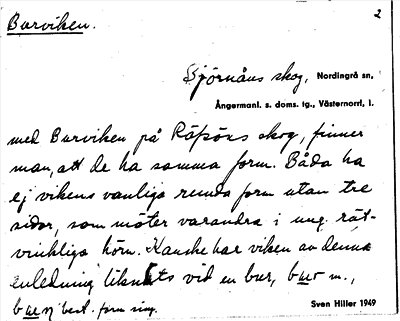 Burviken.
2
Björnåns skog, Nordingrå sn,
Ångermanl. s. doms. tg., Västernorrl. l.
med Burviken på Räfsöns skog, finner
man, att de ha samma form. Båda ha
ej vikens vanliga runda form utan tre
sidor, som möter varandra i ung. rät-
vinkliga hörn. Kanske har viken av denna
anledning liknats vid en bur, bur m.,
buren best. form sing.
Sven Hiller 1949